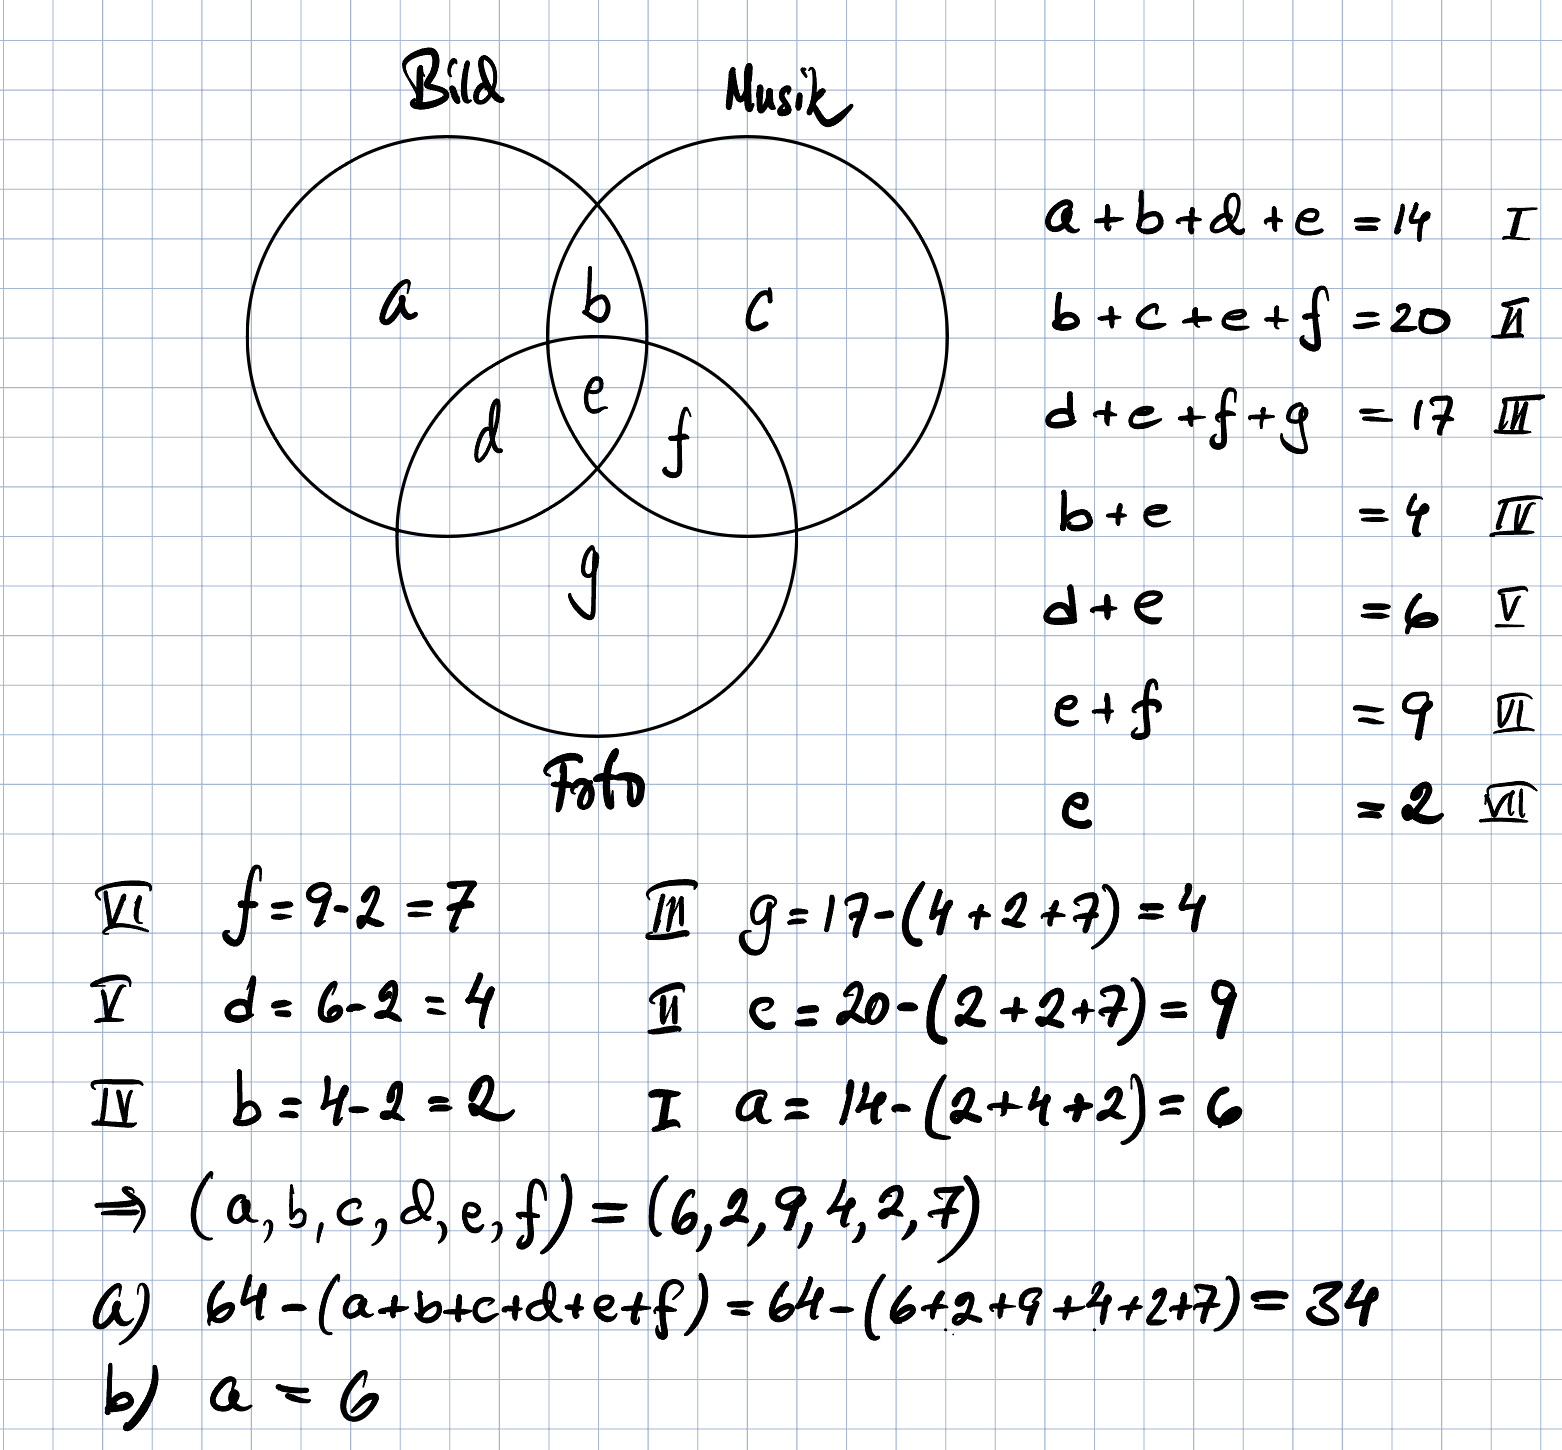 Bild Musik
a b c
d e f
g
Foto
a + b + d + e = 14 I
b + c + e + f = 20 II
d + e + f + g = 17 III
b + e = 4 IV
d + e = 6 V
e + f = 9 VI
e = 2 VII
VI f = 9 - 2 = 7 III g = 17 - (4 + 2 + 7) = 4
V d = 6 - 2 = 4 II c = 20 - (2 + 2 + 7) = 9
IV b = 4 - 2 = 2 I a = 14 - (2 + 4 + 2) = 6
⇒ (a, b, c, d, e, f) = (6, 2, 9, 4, 2, 7)
a) 64 - (a + b + c + d + e + f) = 64 - (6 + 2 + 9 + 4 + 2 + 7) = 34
b) a = 6